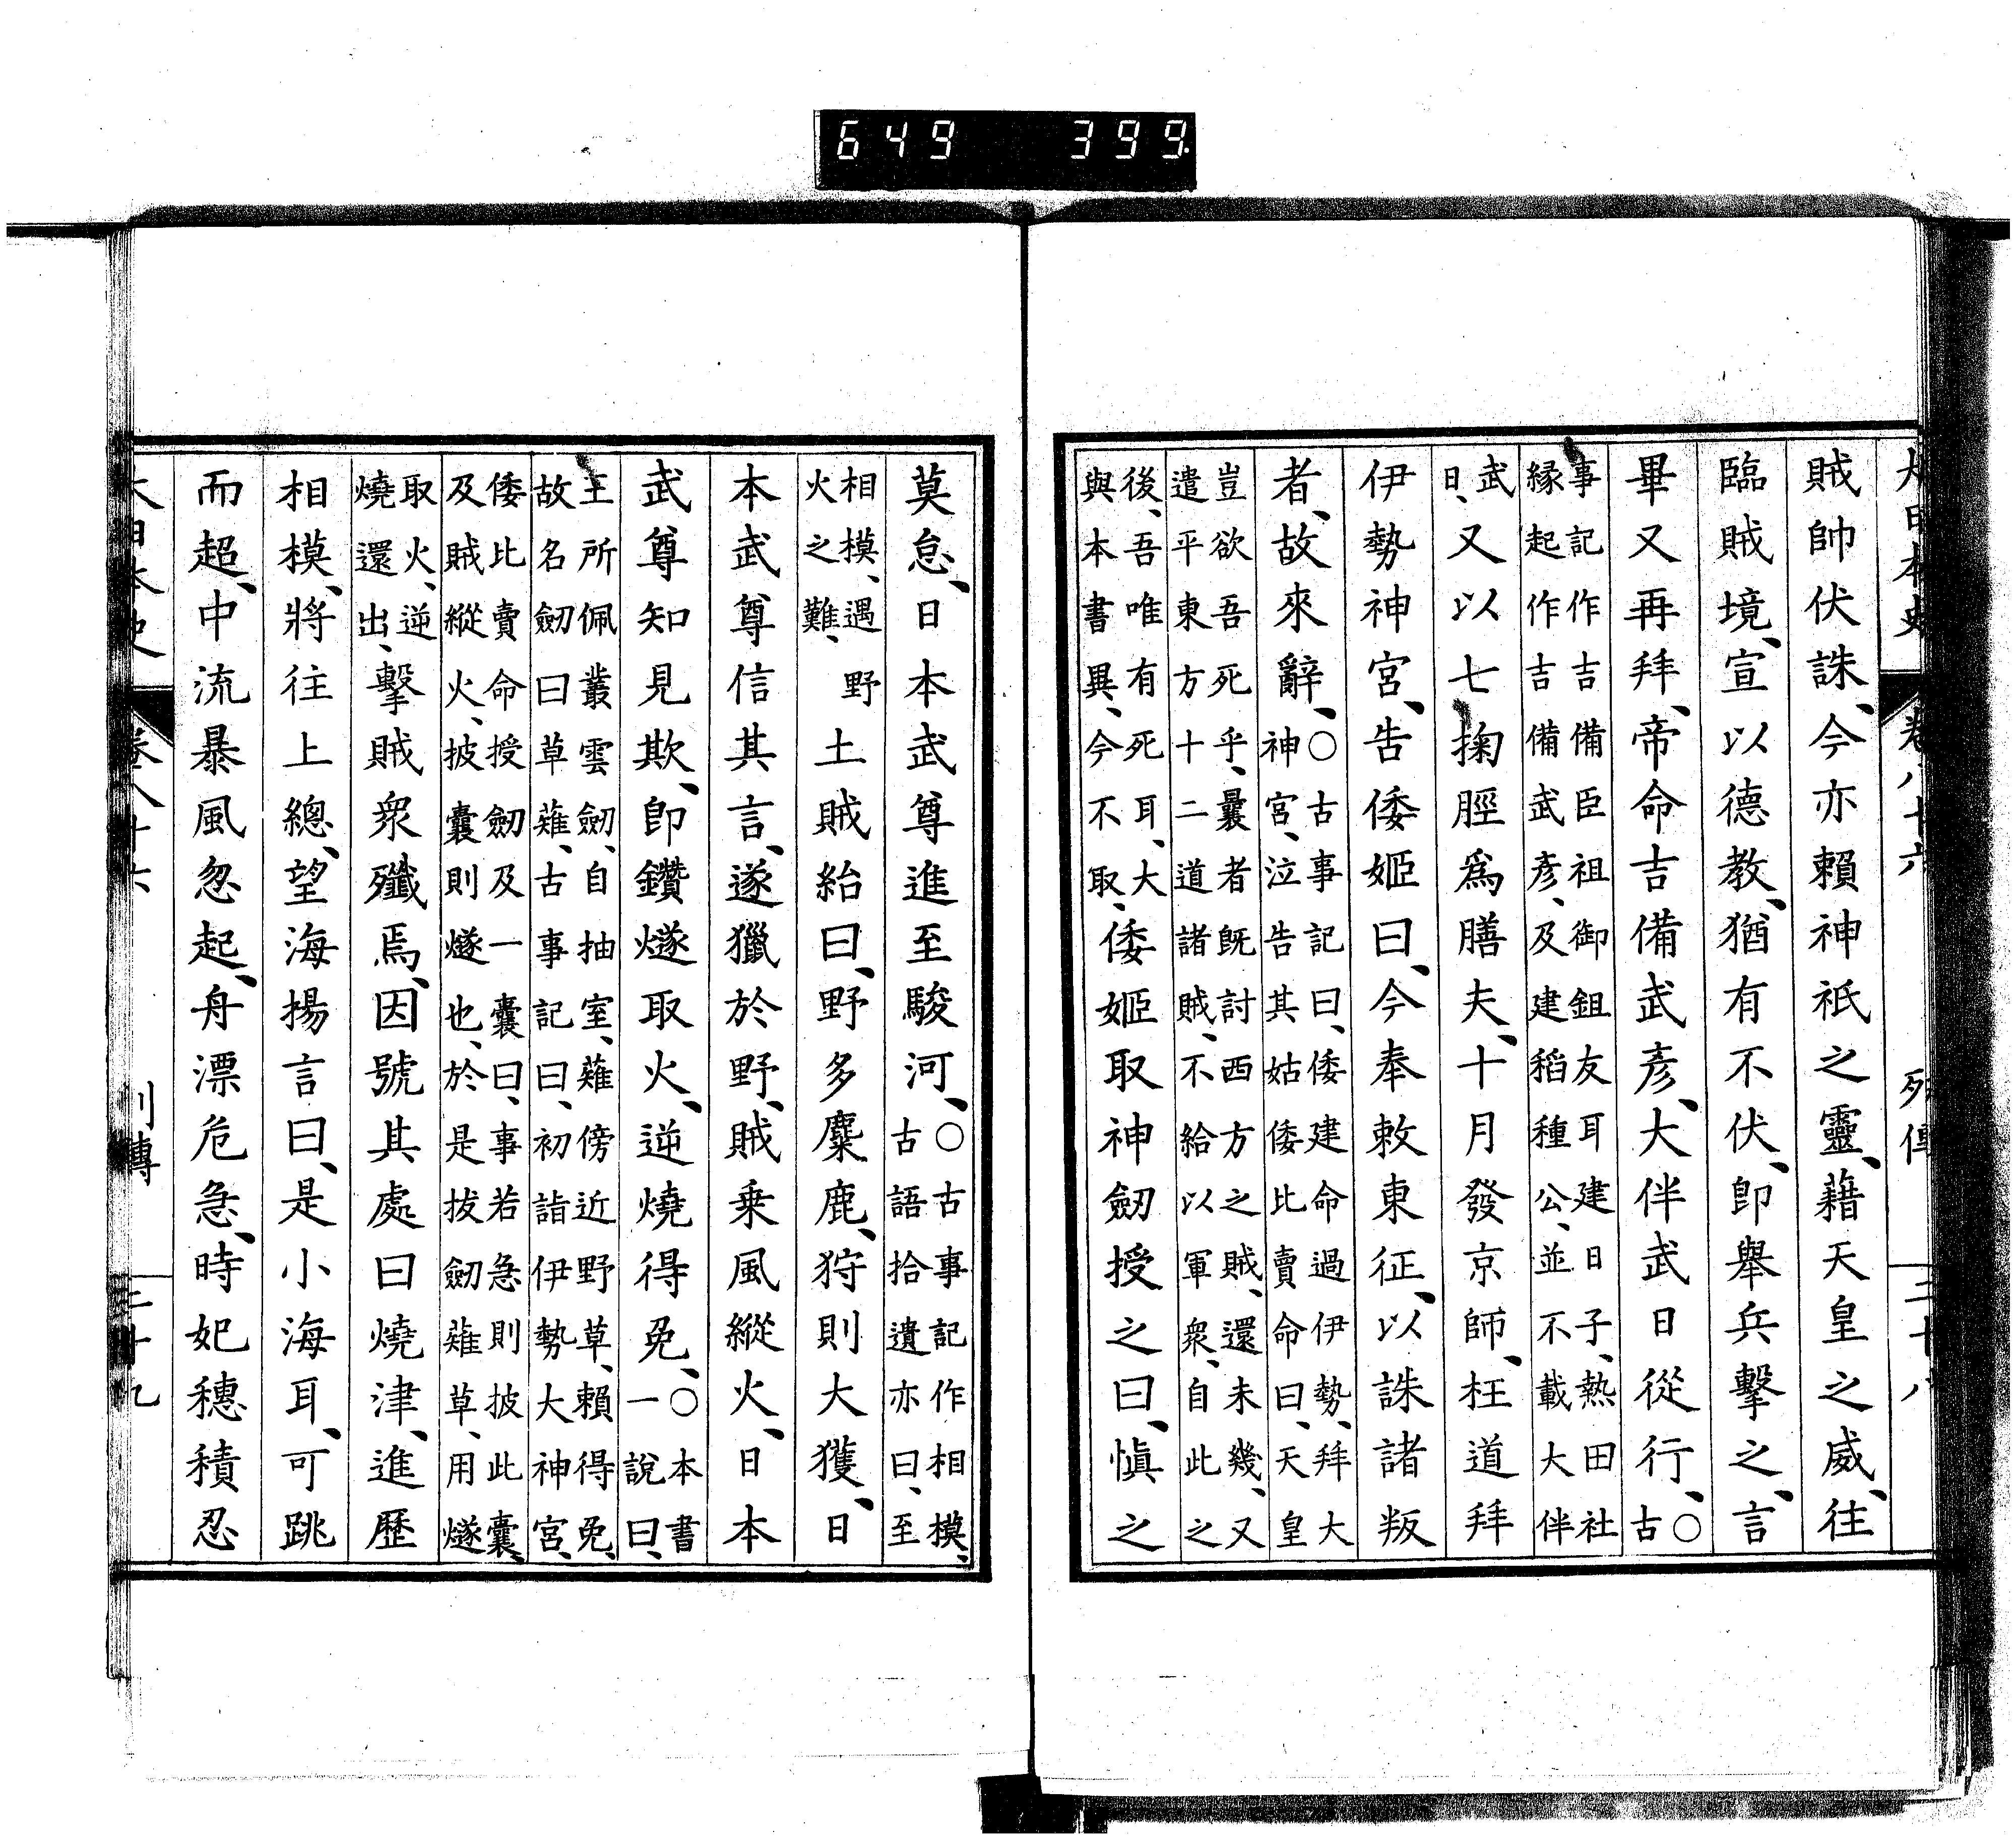 649 399
大日本史 卷八十六 列傳 二十八
賊帥伏誅、今亦賴神祇之靈、藉天皇之威、往
臨賊境、宣以德教、猶有不伏、卽舉兵擊之、言
畢又再拜、帝命吉備武彥、大伴武日從行、○古
事記作吉備臣祖御鉏友耳建日子、熱田社
緣起作吉備武彥、及建稻種公、並不載大伴
武日、又以七掬脛爲膳夫、十月發京師、枉道拜
伊勢神宮、告倭姬曰、今奉敕東征、以誅諸叛
者、故來辭、○古事記曰、倭建命過伊勢、拜大
神宮、泣告其姑倭比賣命曰、天皇
豈欲吾死乎、曩者旣討西方之賊、還未幾、又
遣平東方十二道諸賊、不給以軍衆、自此之
後、吾唯有死耳、大
與本書異、今不取、倭姬取神劒授之曰、愼之
莫怠、日本武尊進至駿河、○古事記作相模、
古語拾遺亦曰、至
相模、遇野
火之難、土賊紿曰、野多麋鹿、狩則大獲、日
本武尊信其言、遂獵於野、賊乘風縱火、日本
武尊知見欺、卽鑽燧取火、逆燒得免、○本書
一說曰、
王所佩叢雲劒、自抽室、薙傍近野草、賴得免、
故名劒曰草薙、古事記曰、初詣伊勢大神宮、
倭比賣命授劒及一囊曰、事若急則披此囊、
及賊縱火、披囊則燧也、於是拔劒薙草、用燧
取火、逆
燒還出、擊賊衆殲焉、因號其處曰燒津、進歷
相模、將往上總、望海揚言曰、是小海耳、可跳
而超、中流暴風忽起、舟漂危急、時妃穗積忍
大日本史 卷八十六 列傳 二十九